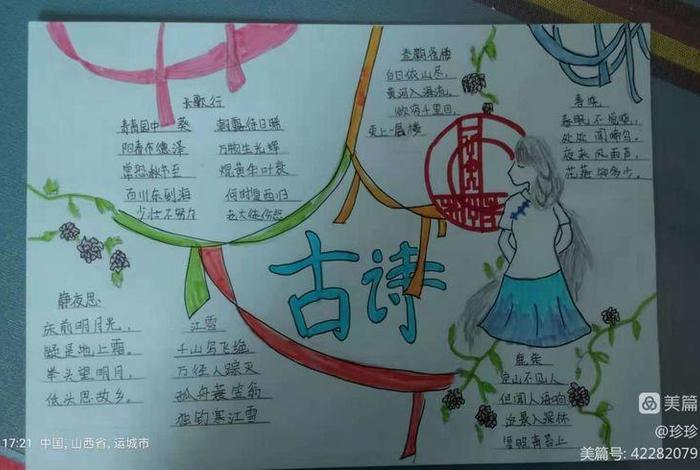 长歌行
青青园中葵 朝露待日晞
阳春布德泽 万物生光辉
常恐秋节至 焜黄华叶衰
百川东到海 何时复西归
少壮不努力 老大徒伤悲
登鹳雀楼
白日依山尽，
黄河入海流。
欲穷千里目，
更上一层楼
春晓
春眠不觉晓，
处处闻啼鸟。
夜来风雨声，
花落知多少。
古诗
静夜思
床前明月光，
疑是地上霜。
举头望明月，
低头思故乡。
江雪
千山鸟飞绝
万径人踪灭
孤舟蓑笠翁
独钓寒江雪
鹿柴
空山不见人
但闻人语响
返景入深林
复照青苔上
17:21 中国, 山西省, 运城市
美篇
@珍珍
美篇号: 42282079